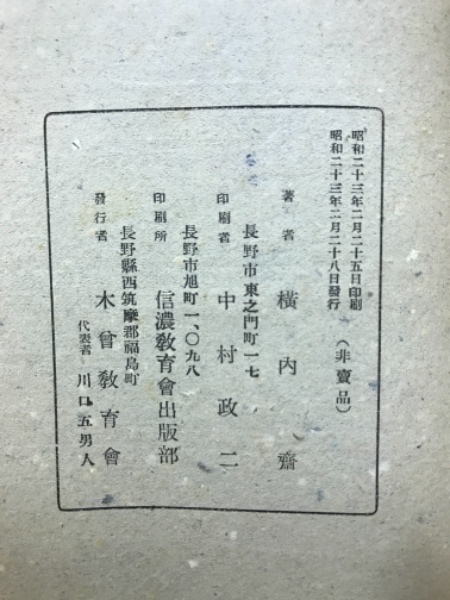 昭和二十三年二月二十五日印刷
昭和二十三年二月二十八日發行
（非賣品）
著者 橫內齋
長野市東之門町一七
印刷者 中村政二
長野市旭町一、〇九八
印刷所 信濃敎育會出版部
長野縣西筑摩郡福島町
發行者 木曾敎育會
代表者 川口五男人